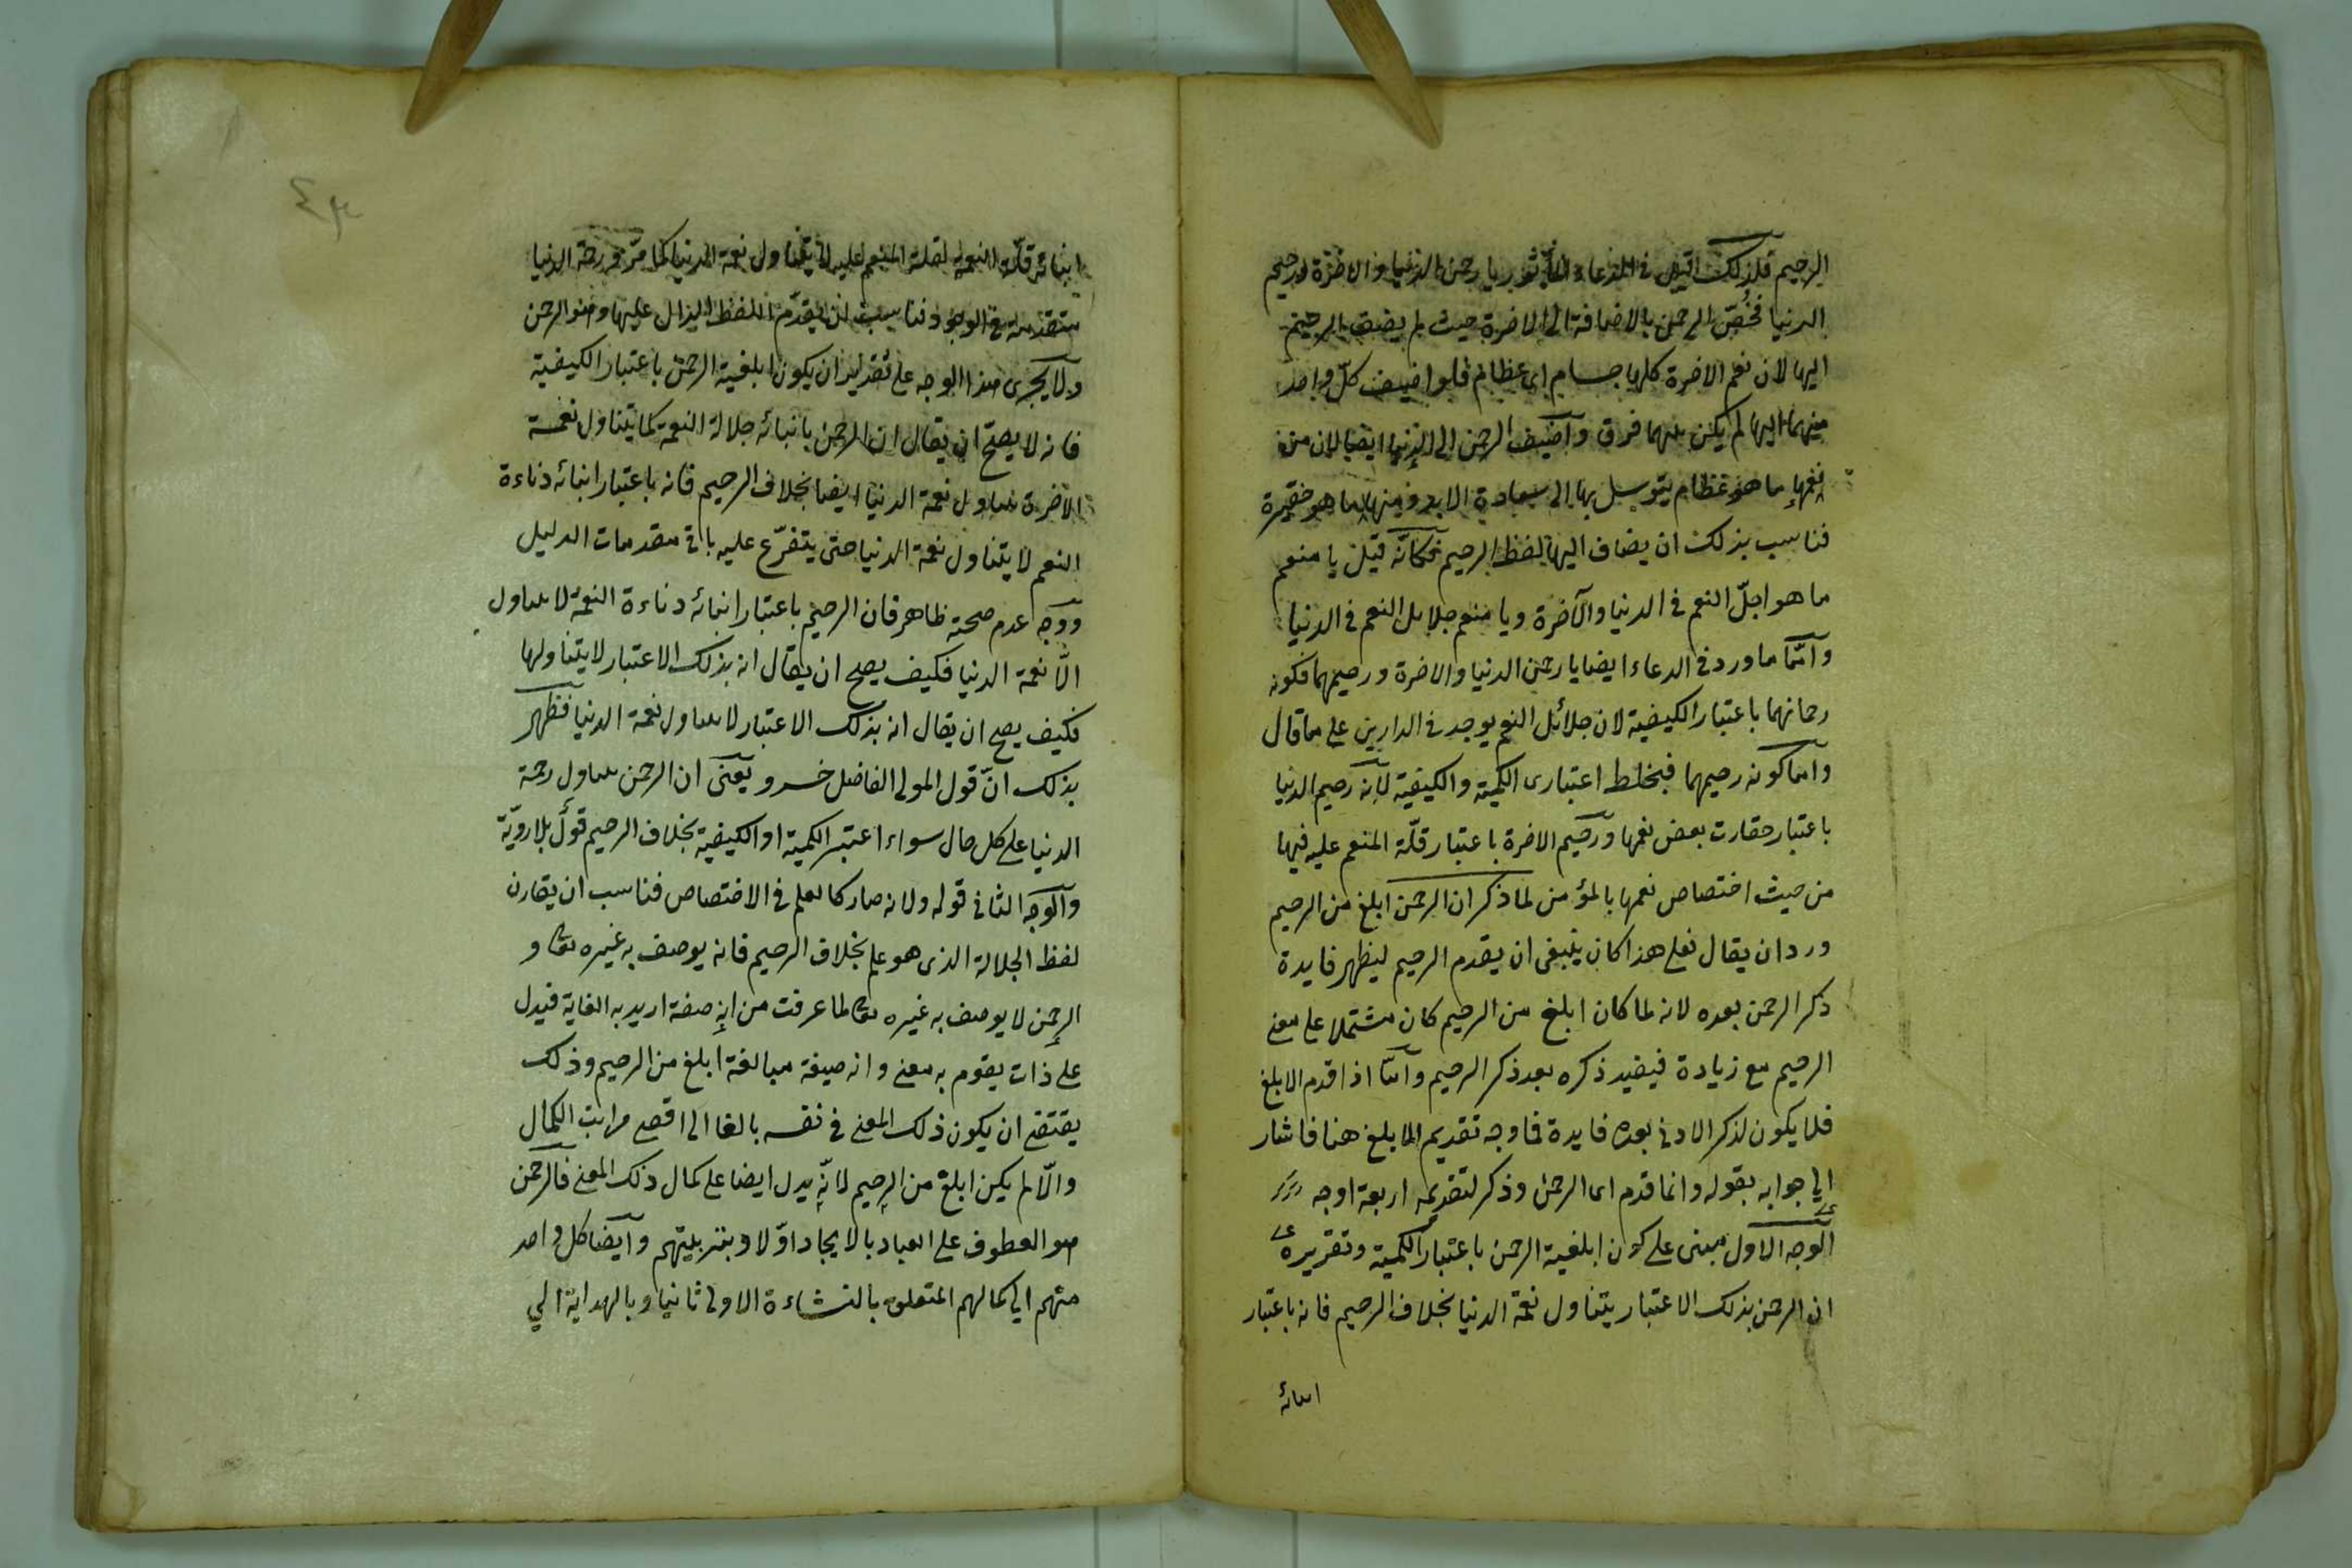 الرحيم فلذلك قيل في الدعاء المأثور يا رحمن الدنيا والاخرة ورحيم
الدنيا فخُصّ الرحمن بالاضافة الى الاخرة حيث لم يضف الرحيم
اليها لان نعم الاخرة كلها جسام اى عظام فلو اضيف كلّ واحد
منهما اليها لم يكن بينهما فرق واضيف الرحمن الى الدنيا ايضا لان من
نعمها ما هو عظام يتوسل بها الى سعادة الابد ومنها ما هو حقيرة
فناسب بذلك ان يضاف اليها لفظ الرحيم فكانّه قيل يا منعم
ما هو اجلّ النعم في الدنيا والآخرة ويا منعم جلايل النعم في الدنيا
وامّا ما ورد في الدعاء ايضا يا رحمن الدنيا والاخرة ورحيمهما فكونه
رحمانهما باعتبار الكيفية لان جلائل النعم يوجد في الدارين على ما قال
وامّا كونه رحيمهما فبخلط اعتبارى الكمية والكيفية لانه رحيم الدنيا
باعتبار حقارت بعض نعمها ورحيم الاخرة باعتبار قلّة المنعم عليه فيها
من حيث اختصاص نعمها بالمؤمن لما ذكر ان الرحمن ابلغ من الرحيم
ورد ان يقال فعلى هذا كان ينبغى ان يقدم الرحيم ليظهر فايدة
ذكر الرحمن بعده لانه لما كان ابلغ من الرحيم كان مشتملا على معنى
الرحيم مع زيادة فيفيد ذكره بعد ذكر الرحيم وامّا اذا قدم الابلغ
فلا يكون لذكر الادنى بعده فايدة فما وجه تقديم الابلغ هنا فاشار
الى جوابه بقوله وانما قدم اى الرحمن وذكر لتقديمه اربعة اوجه
الوجه الاول مبنى على كون ابلغية الرحمن باعتبار الكمية وتقريره
ان الرحمن بذلك الاعتبار يتناول نعمة الدنيا بخلاف الرحيم فانه باعتبار
انبائه
انبائه قلّة النعمة لقلة المنعم عليه لا يتناول نعمة الدنيا كما مرّ ورحمة الدنيا
متقدمة في الوجود فناسب ان يقدّم اللفظ الدال عليها وهو الرحمن
ولا يجرى هذا الوجه على تقدير ان يكون ابلغية الرحمن باعتبار الكيفية
فانه لا يصحّ ان يقال ان الرحمن بانبائه جلالة النعمة كما يتناول نعمة
الآخرة يتناول نعمة الدنيا ايضا بخلاف الرحيم فانه باعتبار انبائه دناءة
النعم لا يتناول نعمة الدنيا حتى يتفرّع عليه باقى مقدمات الدليل
ووجه عدم صحته ظاهر فان الرحيم باعتبار انبائه دناءة النعمة لا يتناول
الّا نعمة الدنيا فكيف يصح ان يقال انه بذلك الاعتبار لا يتناولها
فكيف يصح ان يقال انه بذلك الاعتبار لا يتناول نعمة الدنيا فظهر
بذلك انّ قول المولى الفاضل خسرو يعنى ان الرحمن يتناول رحمة
الدنيا على كل حال سواء اعتبر الكمية او الكيفية بخلاف الرحيم قول بلا رويّة
والوجه الثانى قوله ولانه صار كالعلم في الاختصاص فناسب ان يقارن
لفظ الجلالة الذى هو علم بخلاف الرحيم فانه يوصف به غيره تعالى و
الرحمن لا يوصف به غيره تعالى لما عرفت من انه صفة اريد به الغاية فيدل
على ذات يقوم به معنى وانه صيغة مبالغة ابلغ من الرحيم وذلك
يقتضى ان يكون ذلك المعنى في نفسه بالغا الى اقصى مراتب الكمال
والّا لم يكن ابلغ من الرحيم لانّه يدل ايضا على كمال ذلك المعنى فالرحمن
هو العطوف على العباد بالايجاد اوّلا وبتربيتهم وايضا كل واحد
منهم الى كمالهم المتعلق بالنشاءة الاولى ثانيا وبالهداية الي